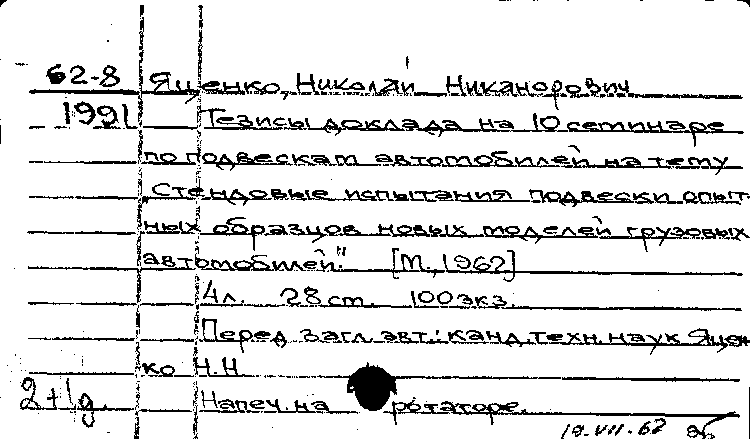 62-8 Яценко, Николай Никанорович
1991 Тезисы доклада на 10 семинаре
по подвескам автомобилей на тему
„Стендовые испытания подвески опыт
ных образцов новых моделей грузовых
автомобилей." [М., 1962]
4л. 28 ст. 100 экз.
Перед загл. авт.: канд. техн. наук Яцен
ко Н.Н
2+1д. Напеч. на ротаторе.
19.VII.62